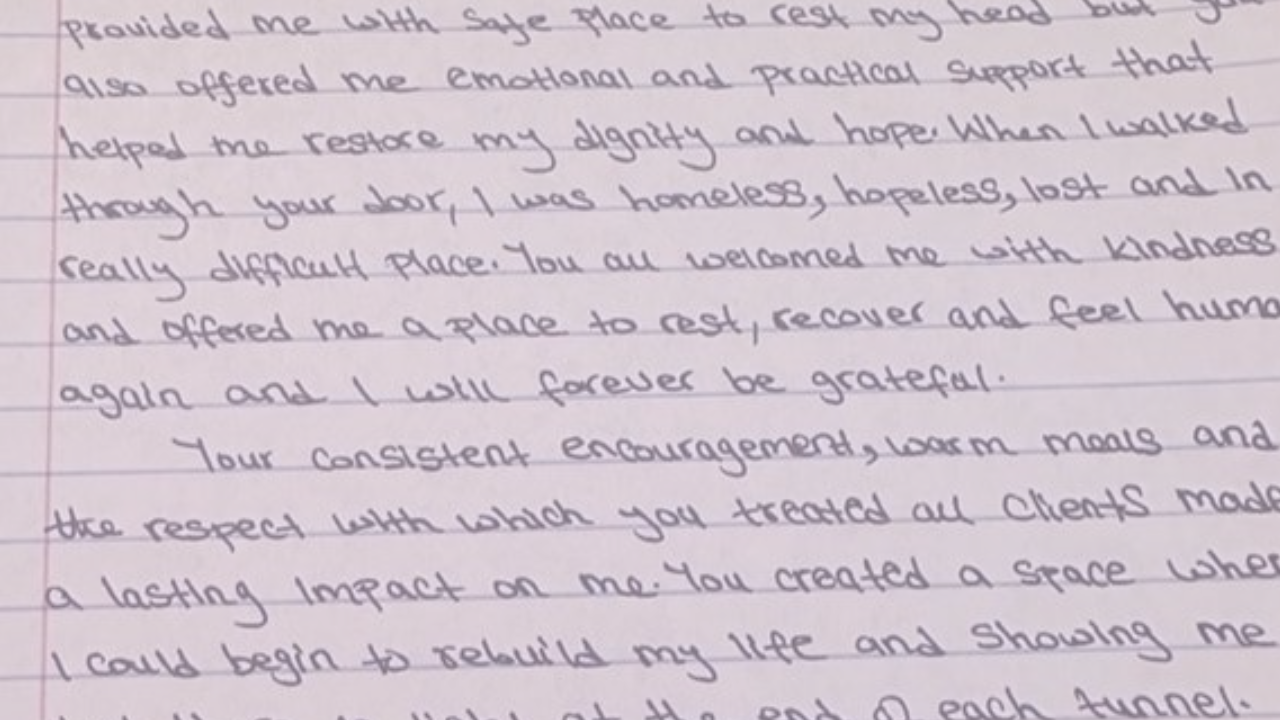 provided me with safe place to rest my head but
also offered me emotional and practical support that
helped me restore my dignity and hope. When I walked
through your door, I was homeless, hopeless, lost and in
really difficult place. You all welcomed me with kindness
and offered me a place to rest, recover and feel huma
again and I will forever be grateful.
Your consistent encouragement, warm meals and
the respect with which you treated all clients made
a lasting impact on me. You created a space wher
I could begin to rebuild my life and showing me
light at the end of each tunnel.